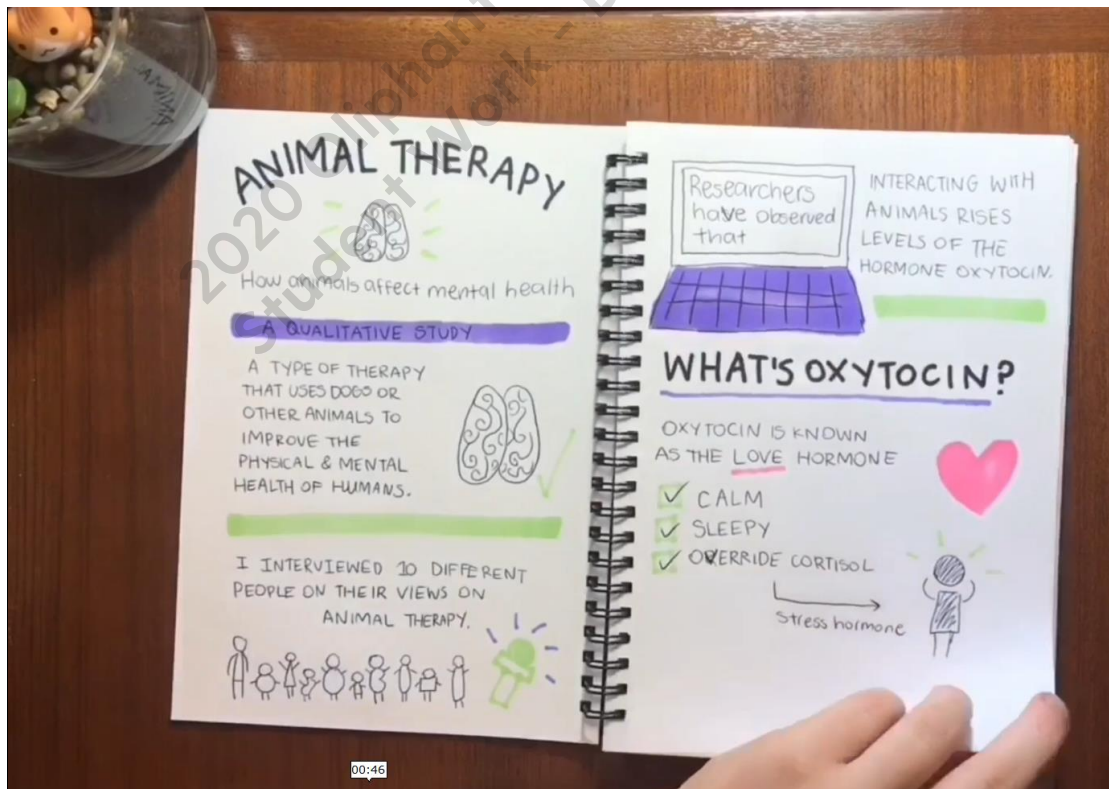 ANIMAL THERAPY
How animals affect mental health
A QUALITATIVE STUDY
A TYPE OF THERAPY
THAT USES DOGS OR
OTHER ANIMALS TO
IMPROVE THE
PHYSICAL & MENTAL
HEALTH OF HUMANS.
I INTERVIEWED 10 DIFFERENT
PEOPLE ON THEIR VIEWS ON
ANIMAL THERAPY.
Researchers
have observed
that
INTERACTING WITH
ANIMALS RISES
LEVELS OF THE
HORMONE OXYTOCIN.
WHAT'S OXYTOCIN?
OXYTOCIN IS KNOWN
AS THE LOVE HORMONE
CALM
SLEEPY
OVERRIDE CORTISOL
Stress hormone
2020 Oliphant
Student Work -
00:46